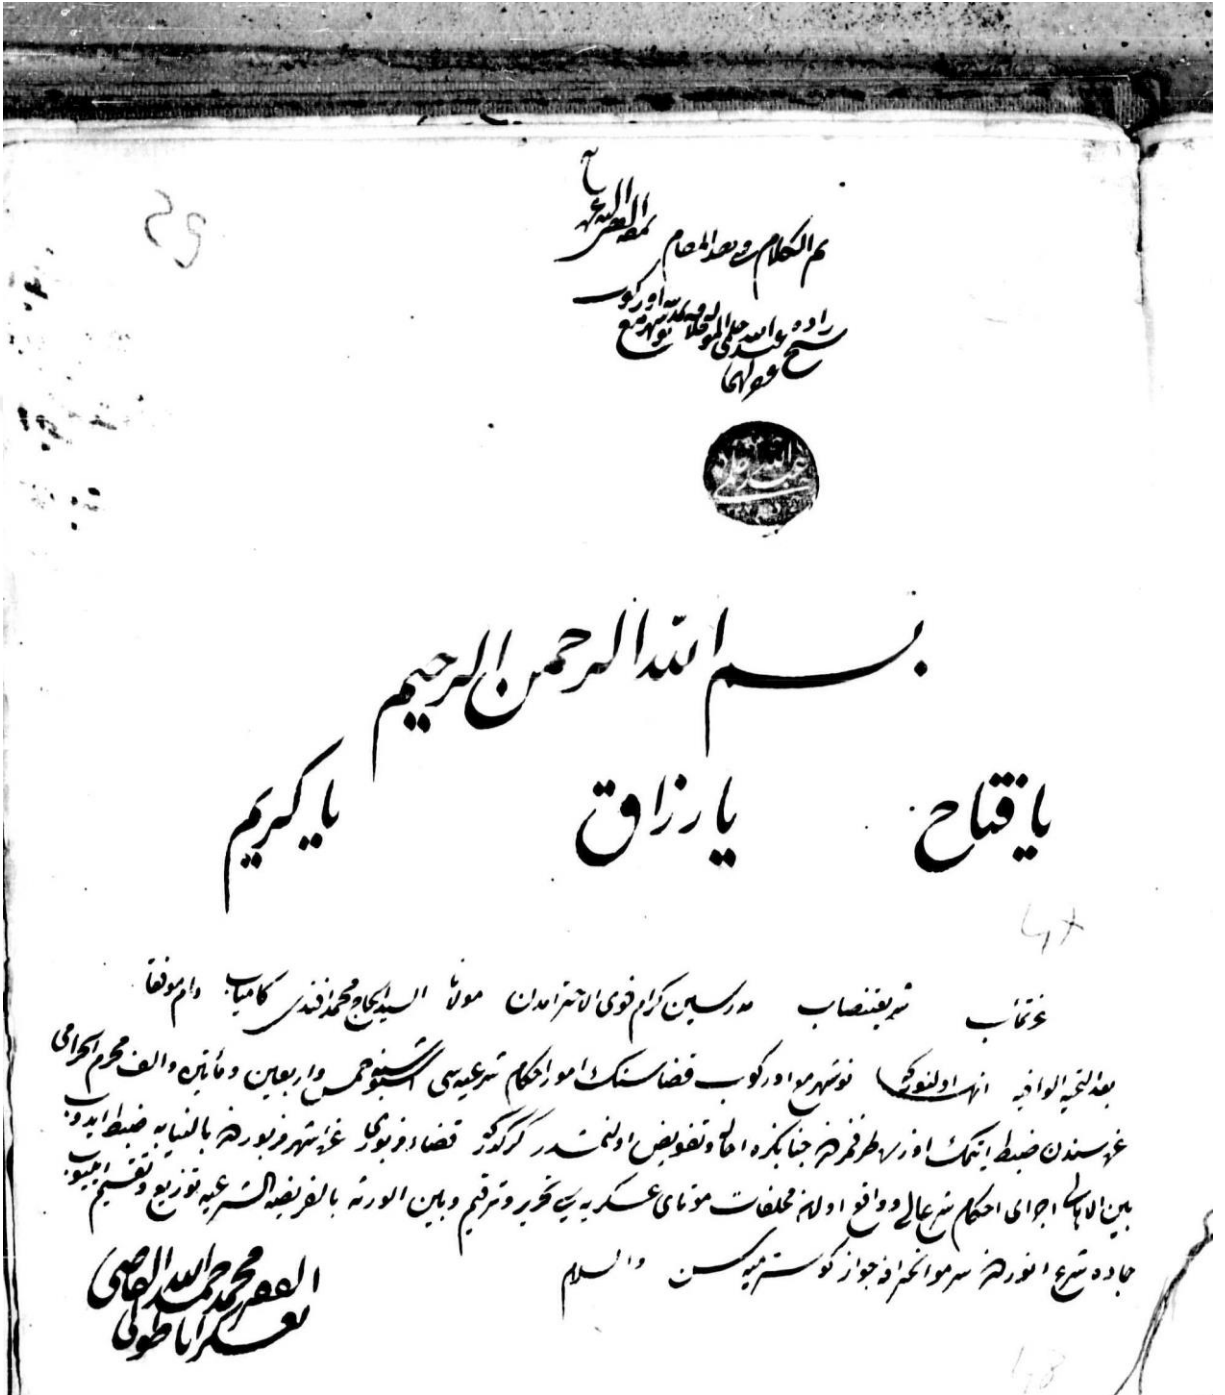 بسم الله الرحمن الرحيم
يا فتاح يا رزاق يا كريم
عزتمآب شريعتنصاب مدرسين كرام ذوى الاحترامدن مولانا السيد الحاج محمد افندى كامياب دام موفقا
بعد التحية الوافيه انها اولنوركه نوشهر مع اوركوب قضاسنك امور احكام شرعيه سى اشبو خمس واربعين ومأتين والف محرم الحرامى
غره سندن ضبط ايتمك اوزره طرفمزدن جنابكزه احاله وتفويض اولنمشدر كركدركه قضاء مزبورى غره شهر مزبوردن بالنيابه ضبط ايدوب
بين الاهالى اجراى احكام شرع عالى وواقع اولان مخلفات موتاى عسكريه يى تحرير وترقيم وبين الورثه بالفريضة الشرعيه توزيع وتقسيم ايليوب
جاده شرع انوردن سرمو انحرافه جواز كوسترميه سن والسلام
الفقير محمد حمد الله القاضى
بعسكر اناطولى